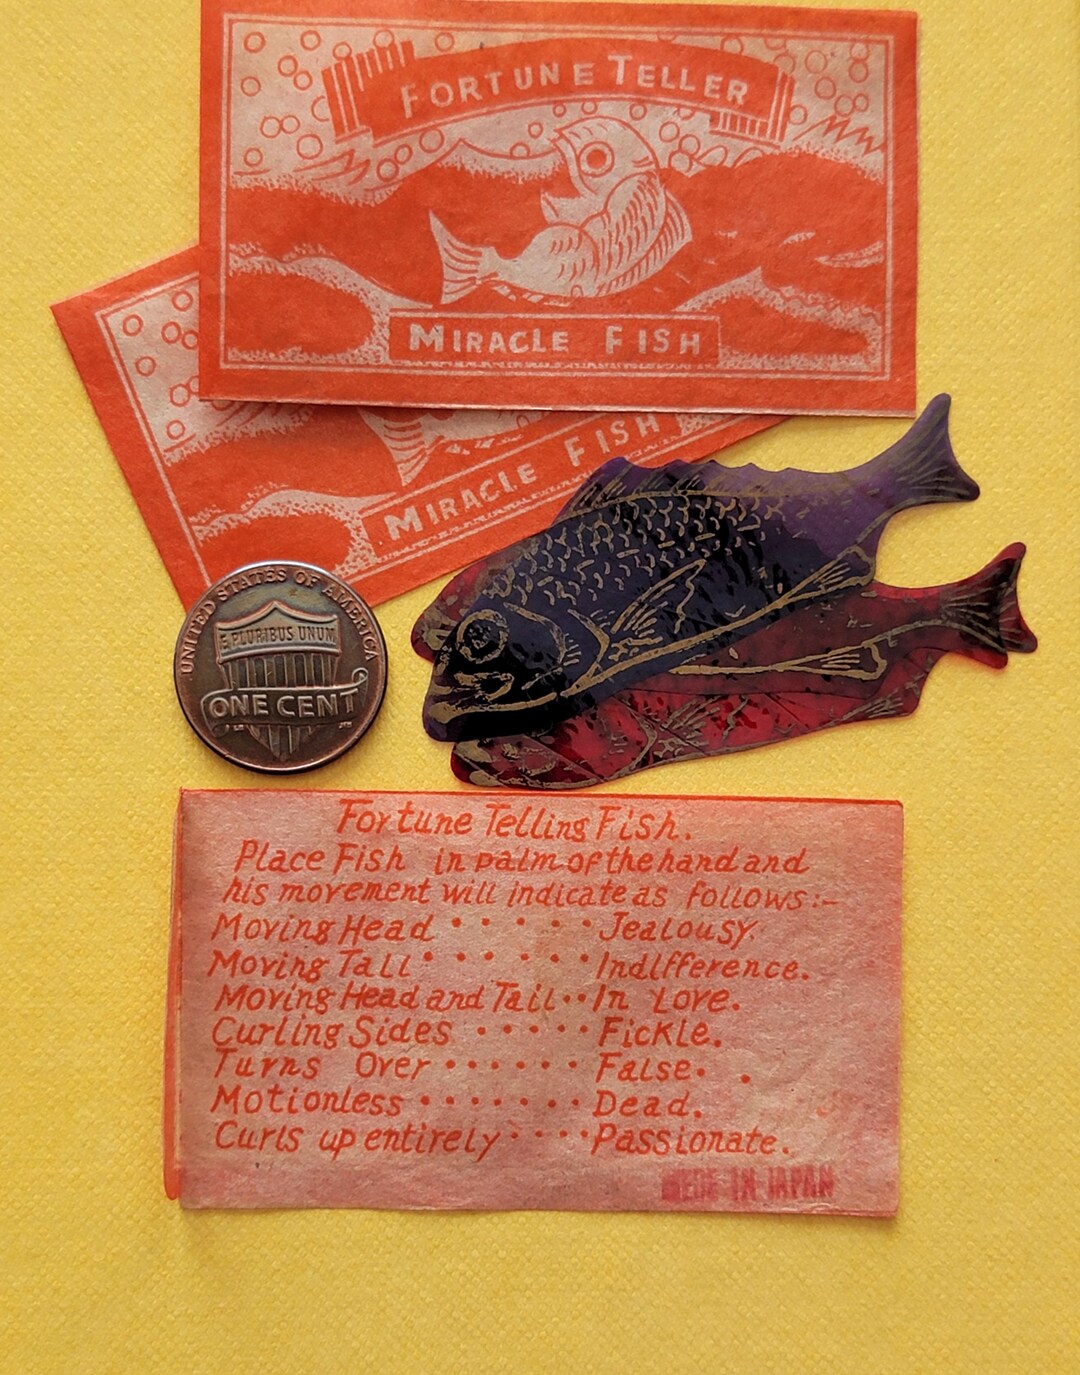 FORTUNE TELLER
MIRACLE FISH
MIRACLE FISH
UNITED STATES OF AMERICA
E PLURIBUS UNUM
ONE CENT
Fortune Telling Fish.
Place Fish in palm of the hand and
his movement will indicate as follows:-
Moving Head · · · · · Jealousy.
Moving Tall · · · · · · Indlfference.
Moving Head and Tail ·· In Love.
Curling Sides · · · · · Fickle.
Turns Over · · · · · · False.
Motionless · · · · · · · Dead.
Curls up entirely · · · · Passionate.
MEDE IN JAPAN